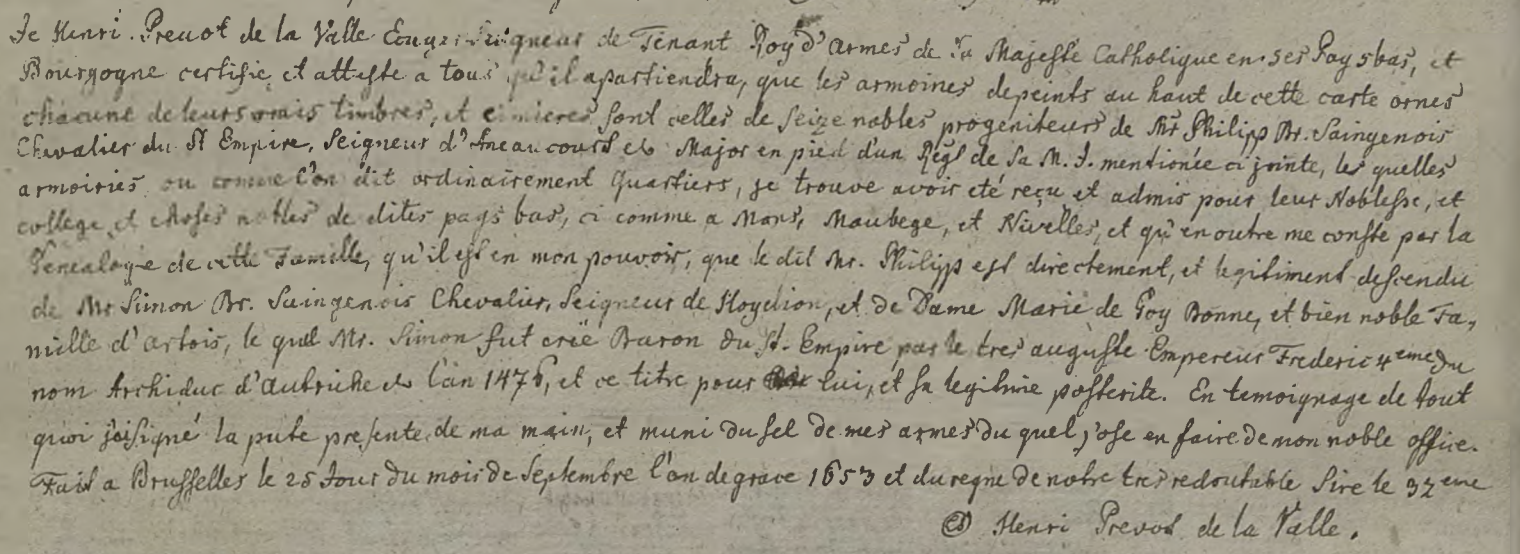 Je Henri Prevot de la Valle Ecuyer Seigneur de Tenant Roy d'armes de sa Majesté Catholique en ses Pays bas, et
Bourgogne certifie et atteste a tous qu'il apartiendra, que les armoines depeints au haut de cette carte ornes
chacune de leurs vrais timbres, et cimieres sont celles de seize nobles progeniteurs de Mr Philipp Br. Saingenois
Chevalier du St Empire, Seigneur d'Aneaucourt et Major en pied d'un Regt de Sa M. I. mentionée ci jointe, les quelles
armoiries ou comme l'on dit ordinairement Quartiers, je trouve avoir eté reçu et admis pour leur Noblesse, et
college et choses nobles de dites pays bas, ci comme a Mons, Maubege, et Nivelles, et qu'en outre me conste par la
Genealogie de cette Famille, qu'il est en mon pouvoir, que le dit Mr. Philipp est directement, et legitiment descendu
de Mr Simon Br. Saingenois Chevalier, Seigneur de et de Dame Marie de Goy Bonne, et bien noble Fa,
mille d'artois, le quel Mr. Simon fut crée Baron du St. Empire par le tres auguste Empereur Frederic 4eme du
nom Archiduc d'autriche l'an 1476, et ce titre pour lui, et sa legitime posterite. En temoignage de tout
quoi la presente de ma main, et muni du sel de mes armes du quel j'ose en faire de mon noble office.
Fait a Brusselles le 25 Jour du mois de Septembre l'an de grace 1653 et du regne de notre tres redoutable Sire le 32eme
Henri Prevot de la Valle.